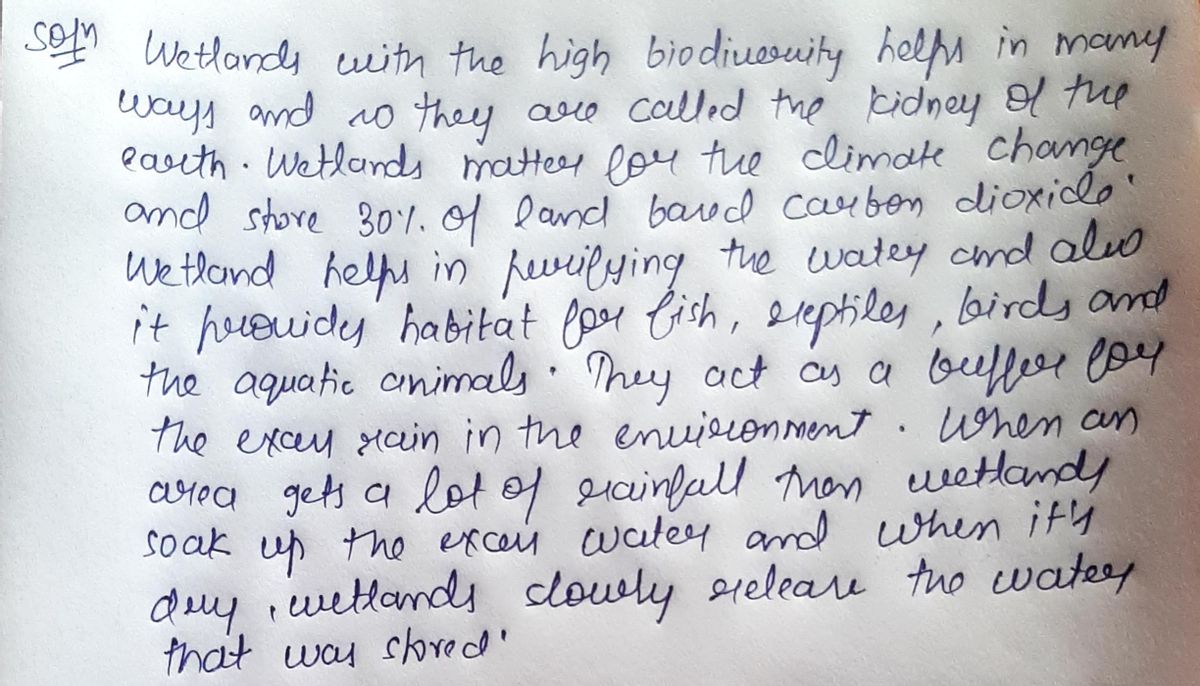 Soln Wetlands with the high biodiversity helps in many
ways and so they are called the kidney of the
earth. Wetlands matter for the climate change
and store 30% of land based carbon dioxide.
Wetland helps in purifying the water and also
it provides habitat for fish, reptiles, birds and
the aquatic animals. They act as a buffer for
the excess rain in the environment. When an
area gets a lot of rainfall then wetlands
soak up the excess water and when it's
dry, wetlands slowly release the water
that was stored.